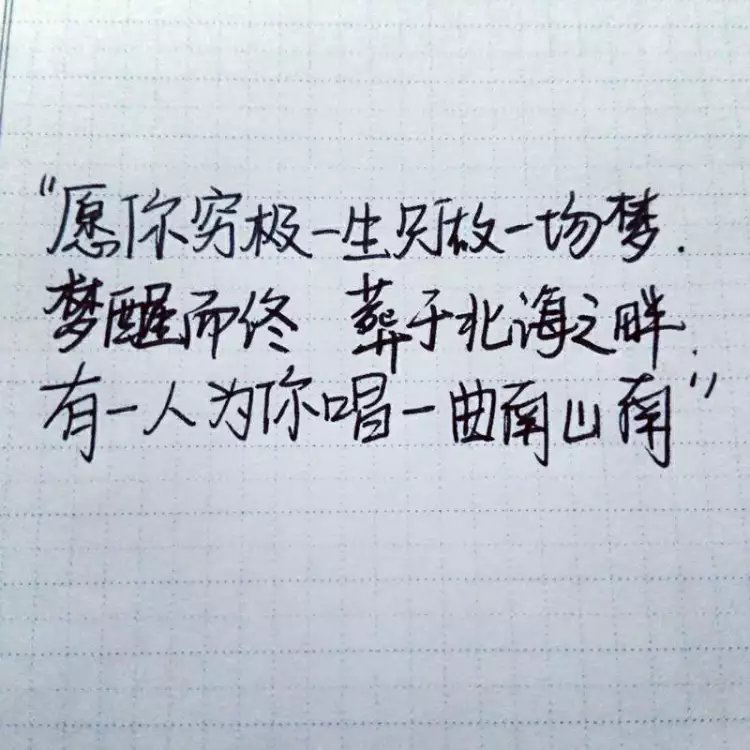 “愿你穷极一生只做一场梦.
梦醒而终 葬于北海之畔.
有一人为你唱一曲南山南”